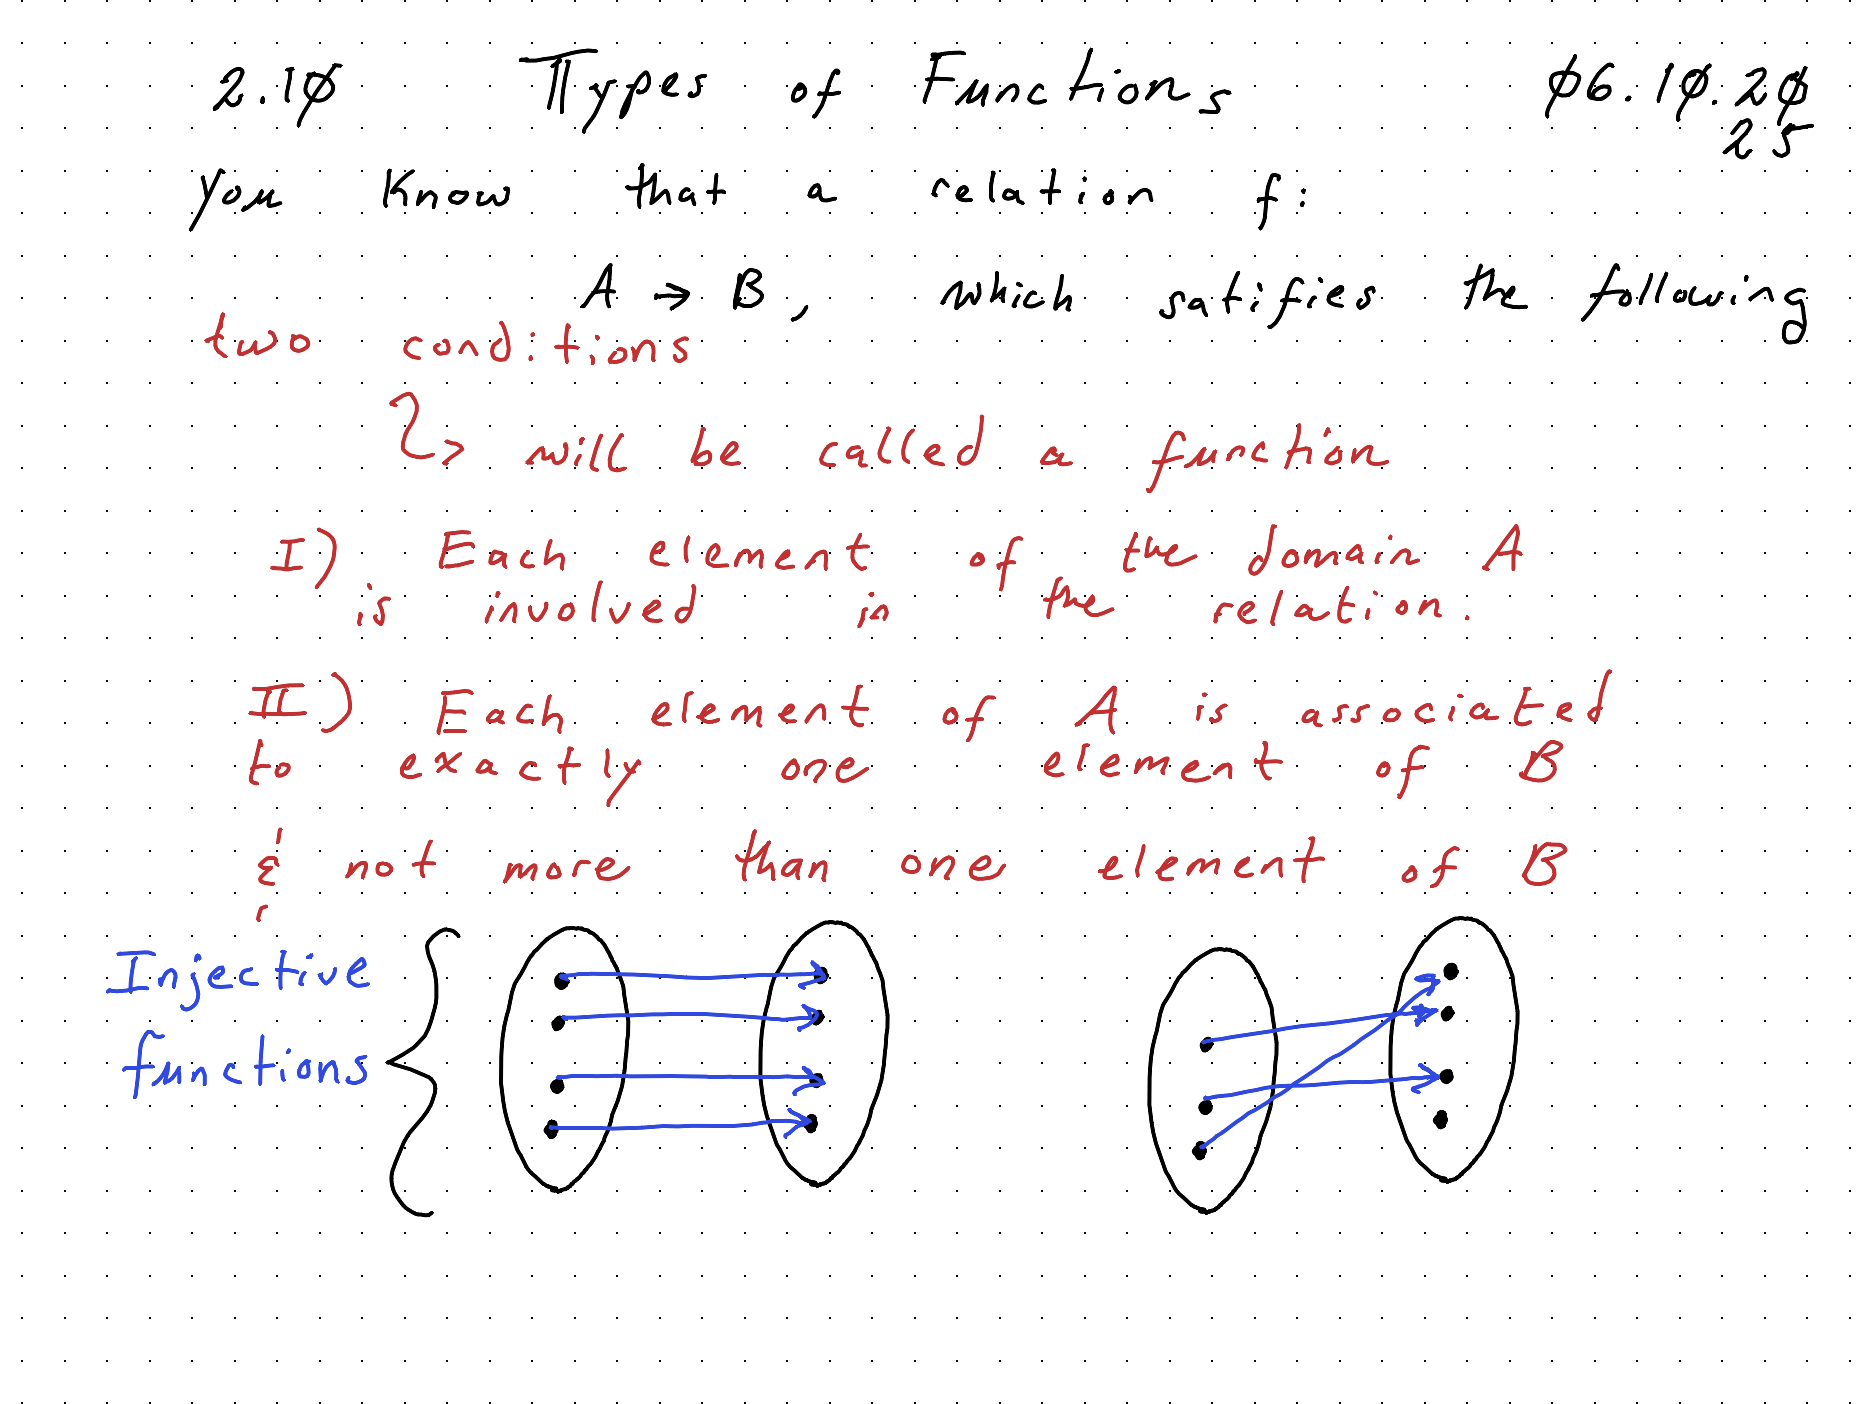 2.1Ø Types of Functions Ø6.1Ø.2Ø
25
you know that a relation f:
A → B, which satifies the following
two conditions
↳ will be called a function
I) Each element of the domain A
is involved in the relation.
II) Each element of A is associated
to exactly one element of B
& not more than one element of B
Injective
functions